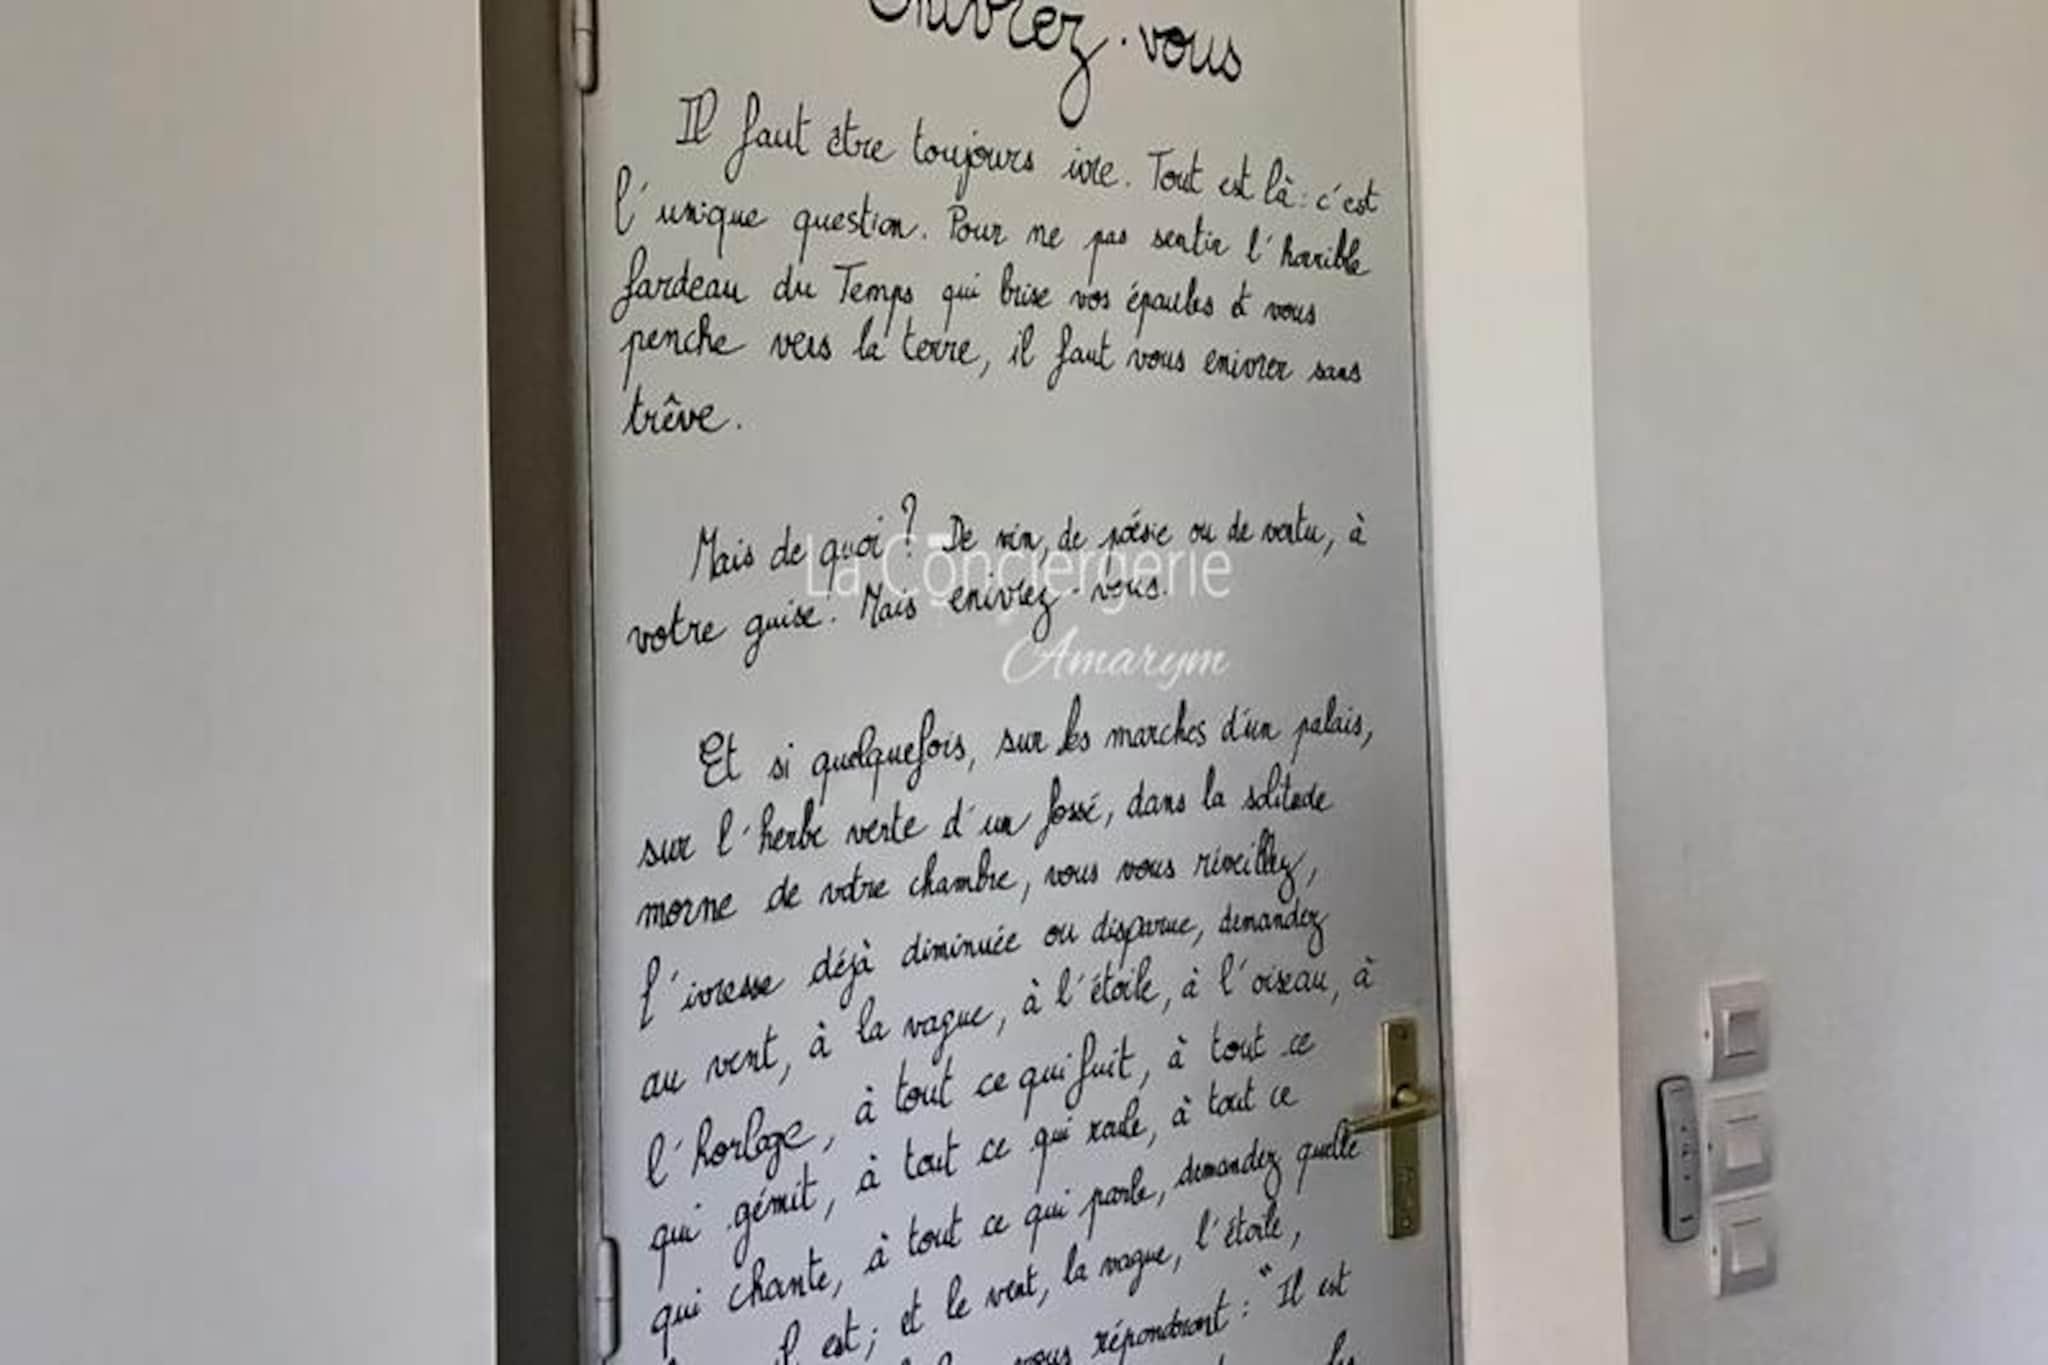 Enivrez-vous
Il faut être toujours ivre. Tout est là : c'est
l'unique question. Pour ne pas sentir l'horrible
fardeau du Temps qui brise vos épaules et vous
penche vers la terre, il faut vous enivrer sans
trêve.
Mais de quoi ? De vin, de poésie ou de vertu, à
votre guise. Mais enivrez-vous.
La Conciergerie
Amarym
Et si quelquefois, sur les marches d'un palais,
sur l'herbe verte d'un fossé, dans la solitude
morne de votre chambre, vous vous réveillez,
l'ivresse déjà diminuée ou disparue, demandez
au vent, à la vague, à l'étoile, à l'oiseau, à
l'horloge, à tout ce qui fuit, à tout ce
qui gémit, à tout ce qui roule, à tout ce
qui chante, à tout ce qui parle, demandez quelle
est ; et le vent, la vague, l'étoile,
vous répondront : "Il est